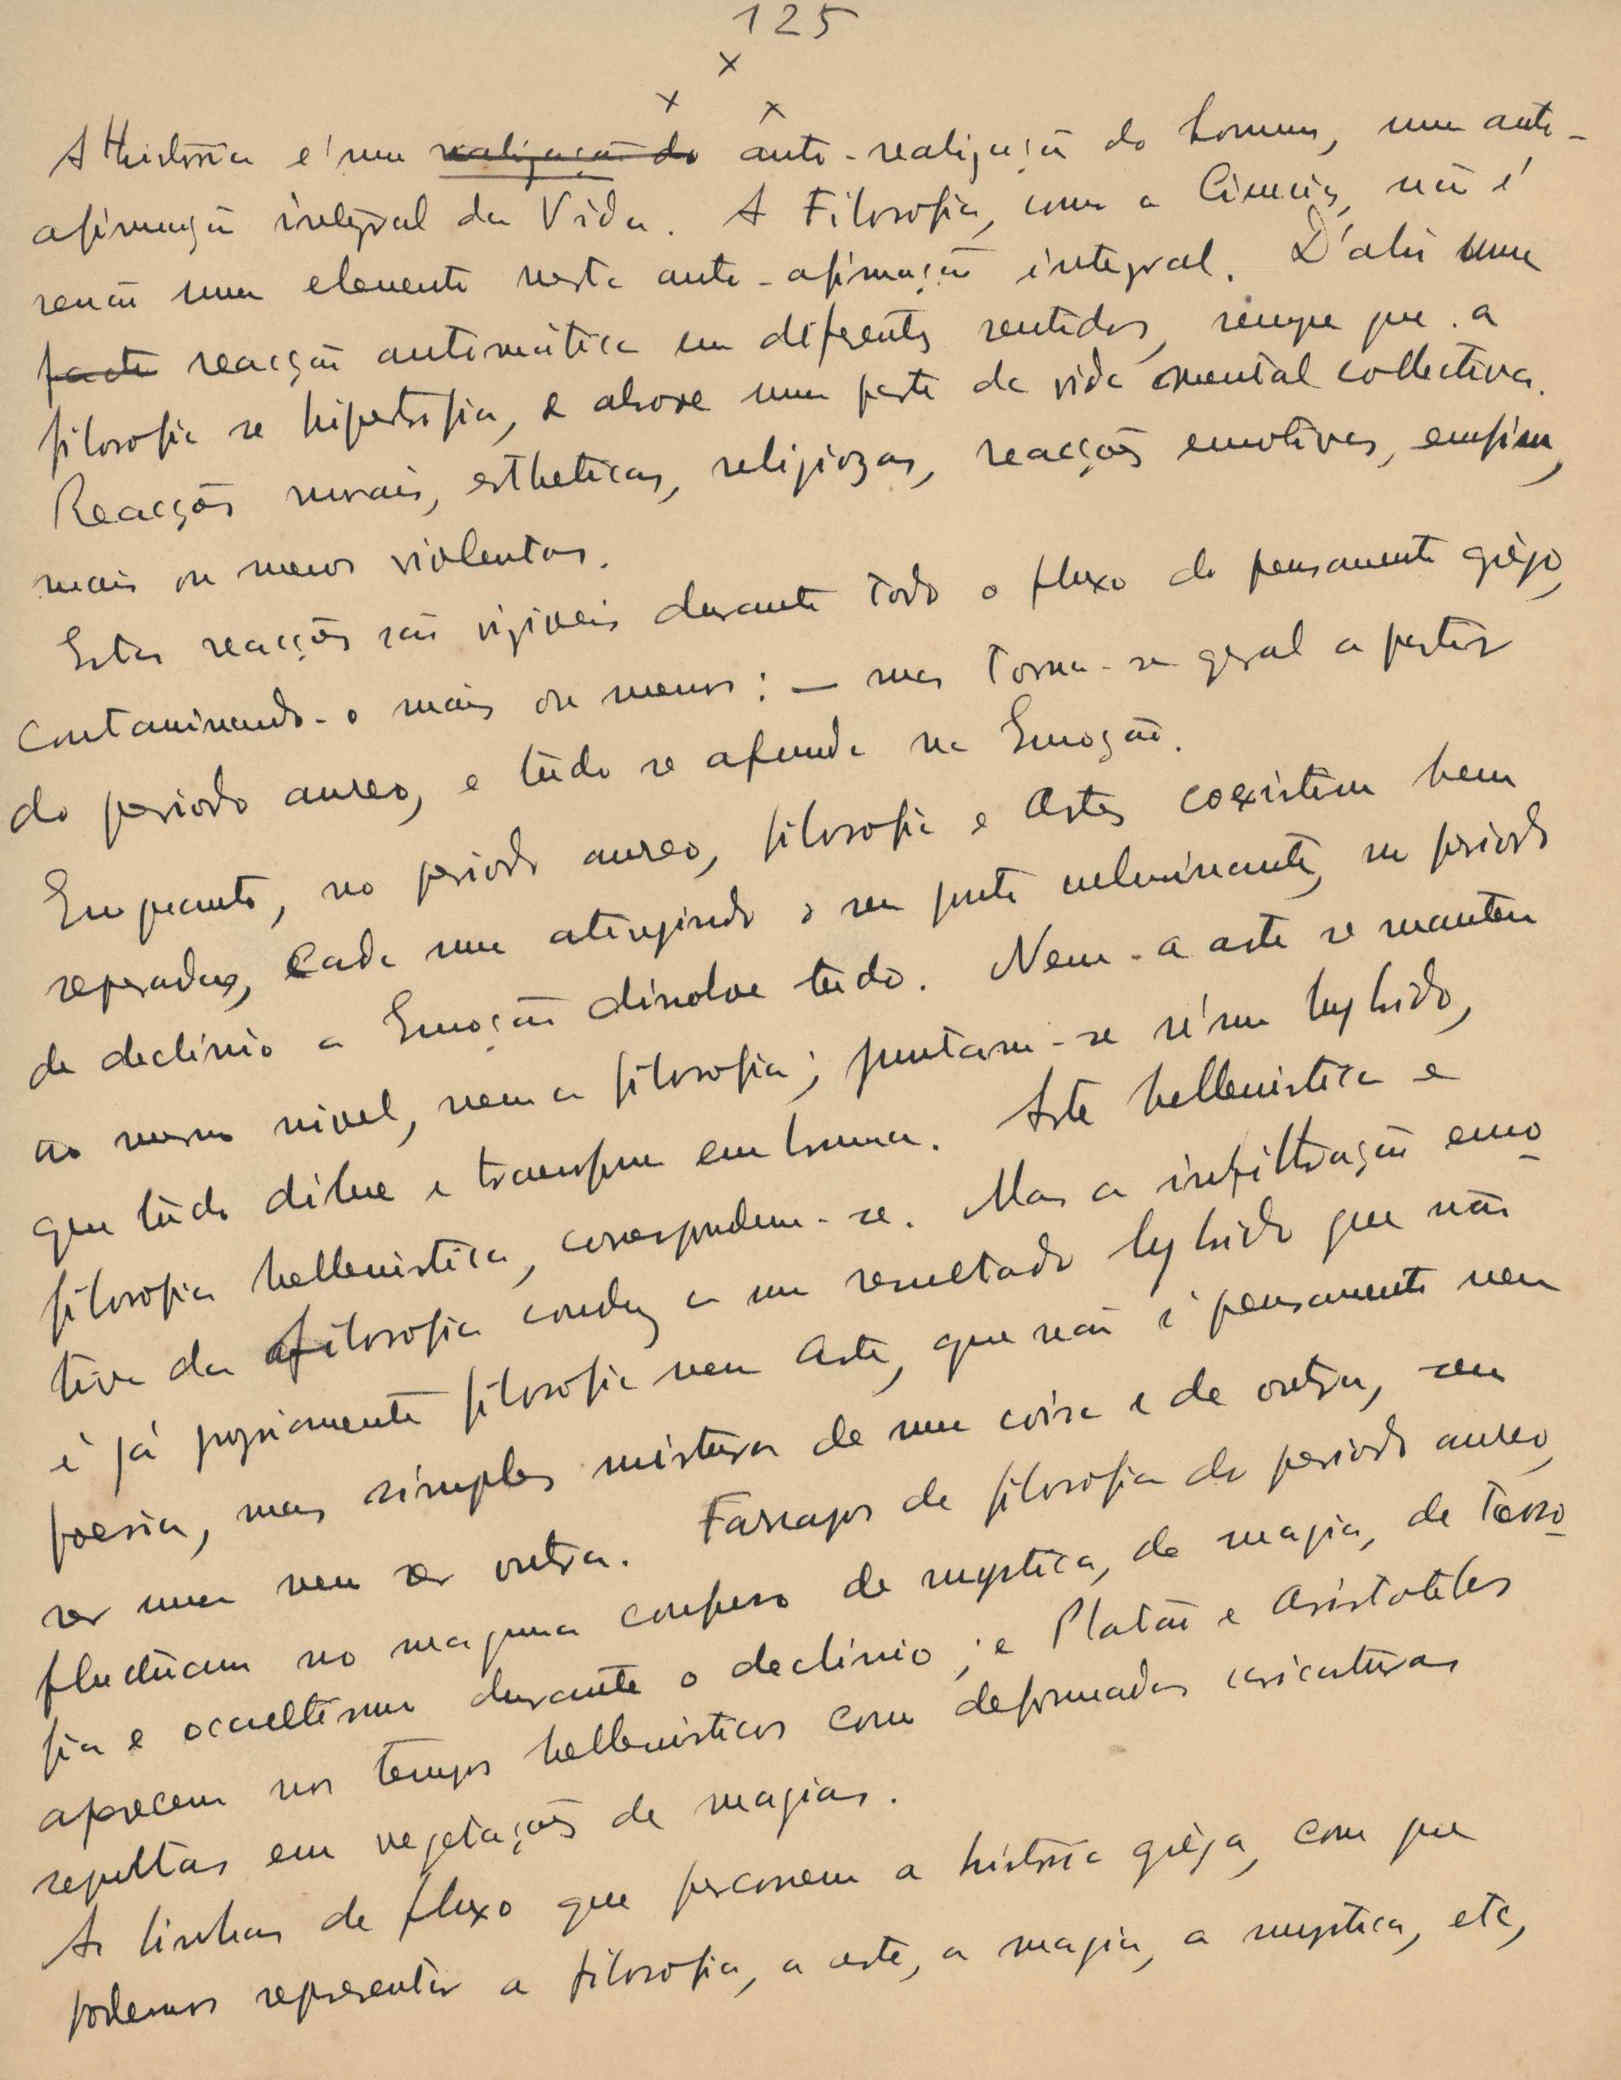 125
x
x x
A História é uma realização do auto-realização do homem, uma auto-
afirmação integral da Vida. A Filosofia, como a Ciencia, não é
senão um elemento nesta auto-afirmação integral. D'ahi uma
facto reacção automática em diferentes sentidos, sempre que a
filosofia se hipertrofia, e absorve uma parte da vida mental collectiva.
Reacções morais, estheticas, religiozas, reacções emotivas, emfim,
mais ou menos violentas.
Estas reacções são viziveis durante todo o fluxo do pensamento grêgo,
contaminando-o mais ou menos: — mas torna-se geral a partir
do periodo aureo, e túdo se afunda na Emoção.
Emquanto, no periodo aureo, filosofia e Artes coexistem bem
separadas, cada uma atingindo o seu ponto culminante, no periodo
de declinio a Emoção dissolve túdo. Nem a arte se mantem
ao mesmo nivel, nem a filosofia; juntam-se n'um hybrido,
que túdo dilue e transforma em bruma. Arte hellenistica e
filosofia hellenistica, correspondem-se. Mas a infiltração emo-
tiva da filosofia conduz a um resultado hybrido que não
é já propriamente filosofia nem Arte, que não é pensamento nem
poesia, mas simples mistura de uma coisa e de outra, sem
ser uma nem ser outra. Farrapos de filosofia do periodo aureo,
fluctúam no magma confuso de mystica, de magia, de Teoso-
fia e occultismo durante o declinio; e Platão e Aristoteles
aparecem nos tempos hellenisticos como deformadas caricaturas
sepultas em vegetações de magias.
As linhas de fluxo que percorrem a história grêga, com que
podemos representar a filosofia, a arte, a magia, a mystica, etc,